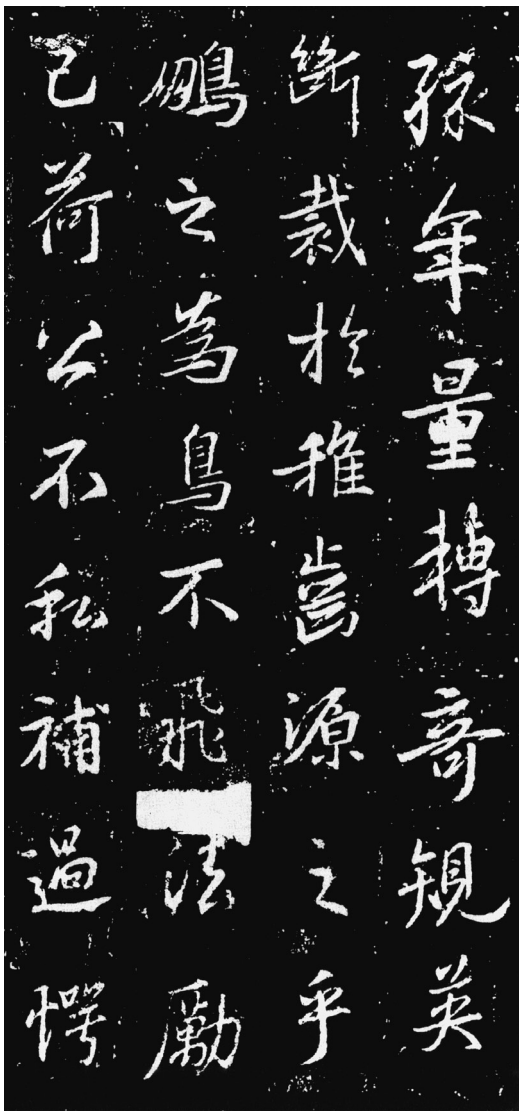 孫年量轉奇規英
斷裁於稚齒源之乎
鵬之為鳥不飛法勵
已荷公不私補過愕